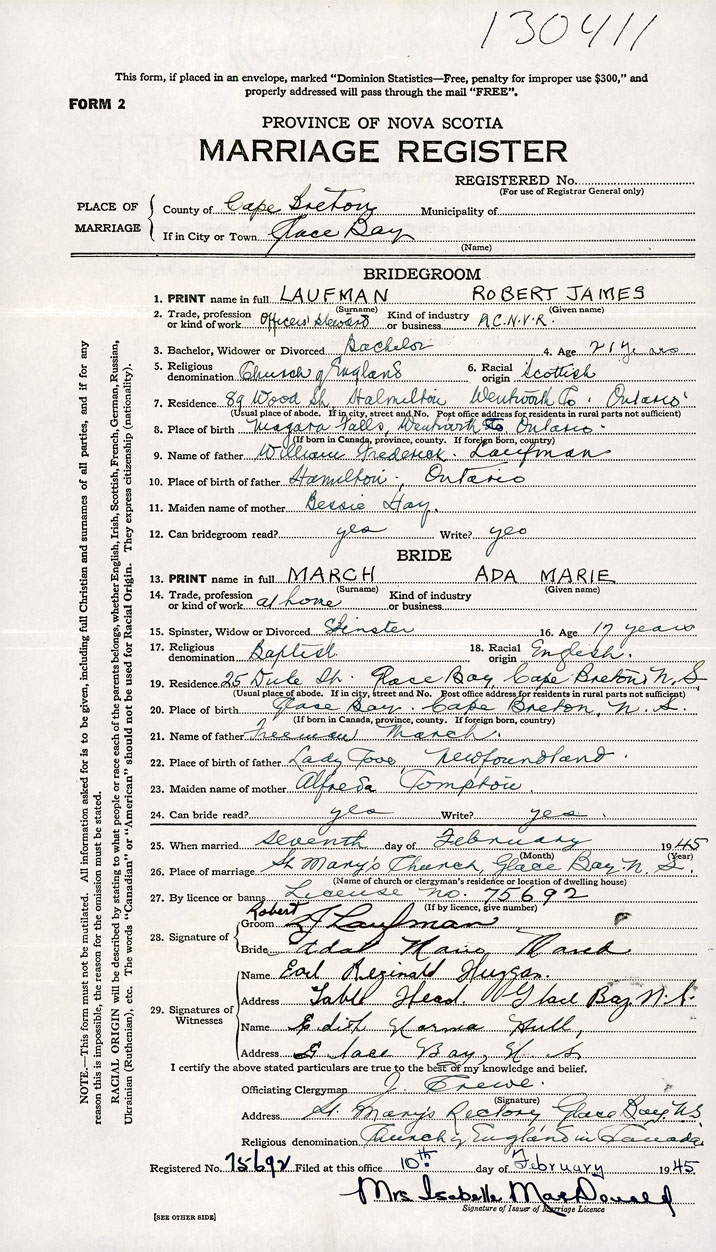 130411
This form, if placed in an envelope, marked "Dominion Statistics—Free, penalty for improper use $300," and
properly addressed will pass through the mail "FREE".
FORM 2
PROVINCE OF NOVA SCOTIA
MARRIAGE REGISTER
REGISTERED No.
(For use of Registrar General only)
PLACE OF MARRIAGE
County of Cape Breton Municipality of
If in City or Town Glace Bay
(Name)
BRIDEGROOM
1. PRINT name in full LAUFMAN ROBERT JAMES
(Surname) (Given name)
2. Trade, profession or kind of work Officers' Steward Kind of industry or business R.C.N.V.R.
3. Bachelor, Widower or Divorced Bachelor 4. Age 21 years
5. Religious denomination Church of England 6. Racial origin Scottish
7. Residence 89 Wood St. Hamilton Wentworth Co. Ontario
(Usual place of abode. If in city, street and No. Post office address for residents in rural parts not sufficient)
8. Place of birth Niagara Falls, Wentworth Co Ontario
(If born in Canada, province, county. If foreign born, country)
9. Name of father William Frederick Laufman
10. Place of birth of father Hamilton, Ontario
11. Maiden name of mother Bessie Hay.
12. Can bridegroom read? yes Write? yes
BRIDE
13. PRINT name in full MARCH ADA MARIE
(Surname) (Given name)
14. Trade, profession or kind of work at home Kind of industry or business
15. Spinster, Widow or Divorced Spinster 16. Age 17 years
17. Religious denomination Baptist 18. Racial origin English.
19. Residence 25 St. Glace Bay, Cape Breton, N.S
(Usual place of abode. If in city, street and No. Post office address for residents in rural parts not sufficient)
20. Place of birth Glace Bay. Cape Breton, N. S.
(If born in Canada, province, county. If foreign born, country)
21. Name of father Freeman March.
22. Place of birth of father Lady Cove, Newfoundland.
23. Maiden name of mother Alfreda
24. Can bride read? yes Write? yes.
25. When married seventh day of February 1945
(Month) (Year)
26. Place of marriage St. Mary's Church, Glace Bay N. S.
(Name of church or clergyman's residence or location of dwelling house)
27. By licence or banns License No. 75692
(If by licence, give number)
28. Signature of
Groom Robert Laufman
Bride Adah Marie March
29. Signatures of Witnesses
Name Earl Reginald
Address Table Head. Glace Bay N.S.
Name Edith Norma Hull,
Address Glace Bay, N. S
I certify the above stated particulars are true to the best of my knowledge and belief.
Officiating Clergyman J. Trewe.
(Signature)
Address St. Mary's Rectory Glace Bay N.S
Religious denomination Church of England in Canada
Registered No. 75692 Filed at this office 10th day of February 1945
Mrs Isabelle MacDonald
Signature of Issuer of Marriage Licence
[SEE OTHER SIDE]
NOTE.—This form must not be mutilated. All information asked for is to be given, including full Christian and surnames of all parties, and if for any
reason this is impossible, the reason for the omission must be stated.
RACIAL ORIGIN will be described by stating to what people or race each of the parents belongs, whether English, Irish, Scottish, French, German, Russian,
Ukrainian (Ruthenian), etc. The words "Canadian" or "American" should not be used for Racial Origin. They express citizenship (nationality).